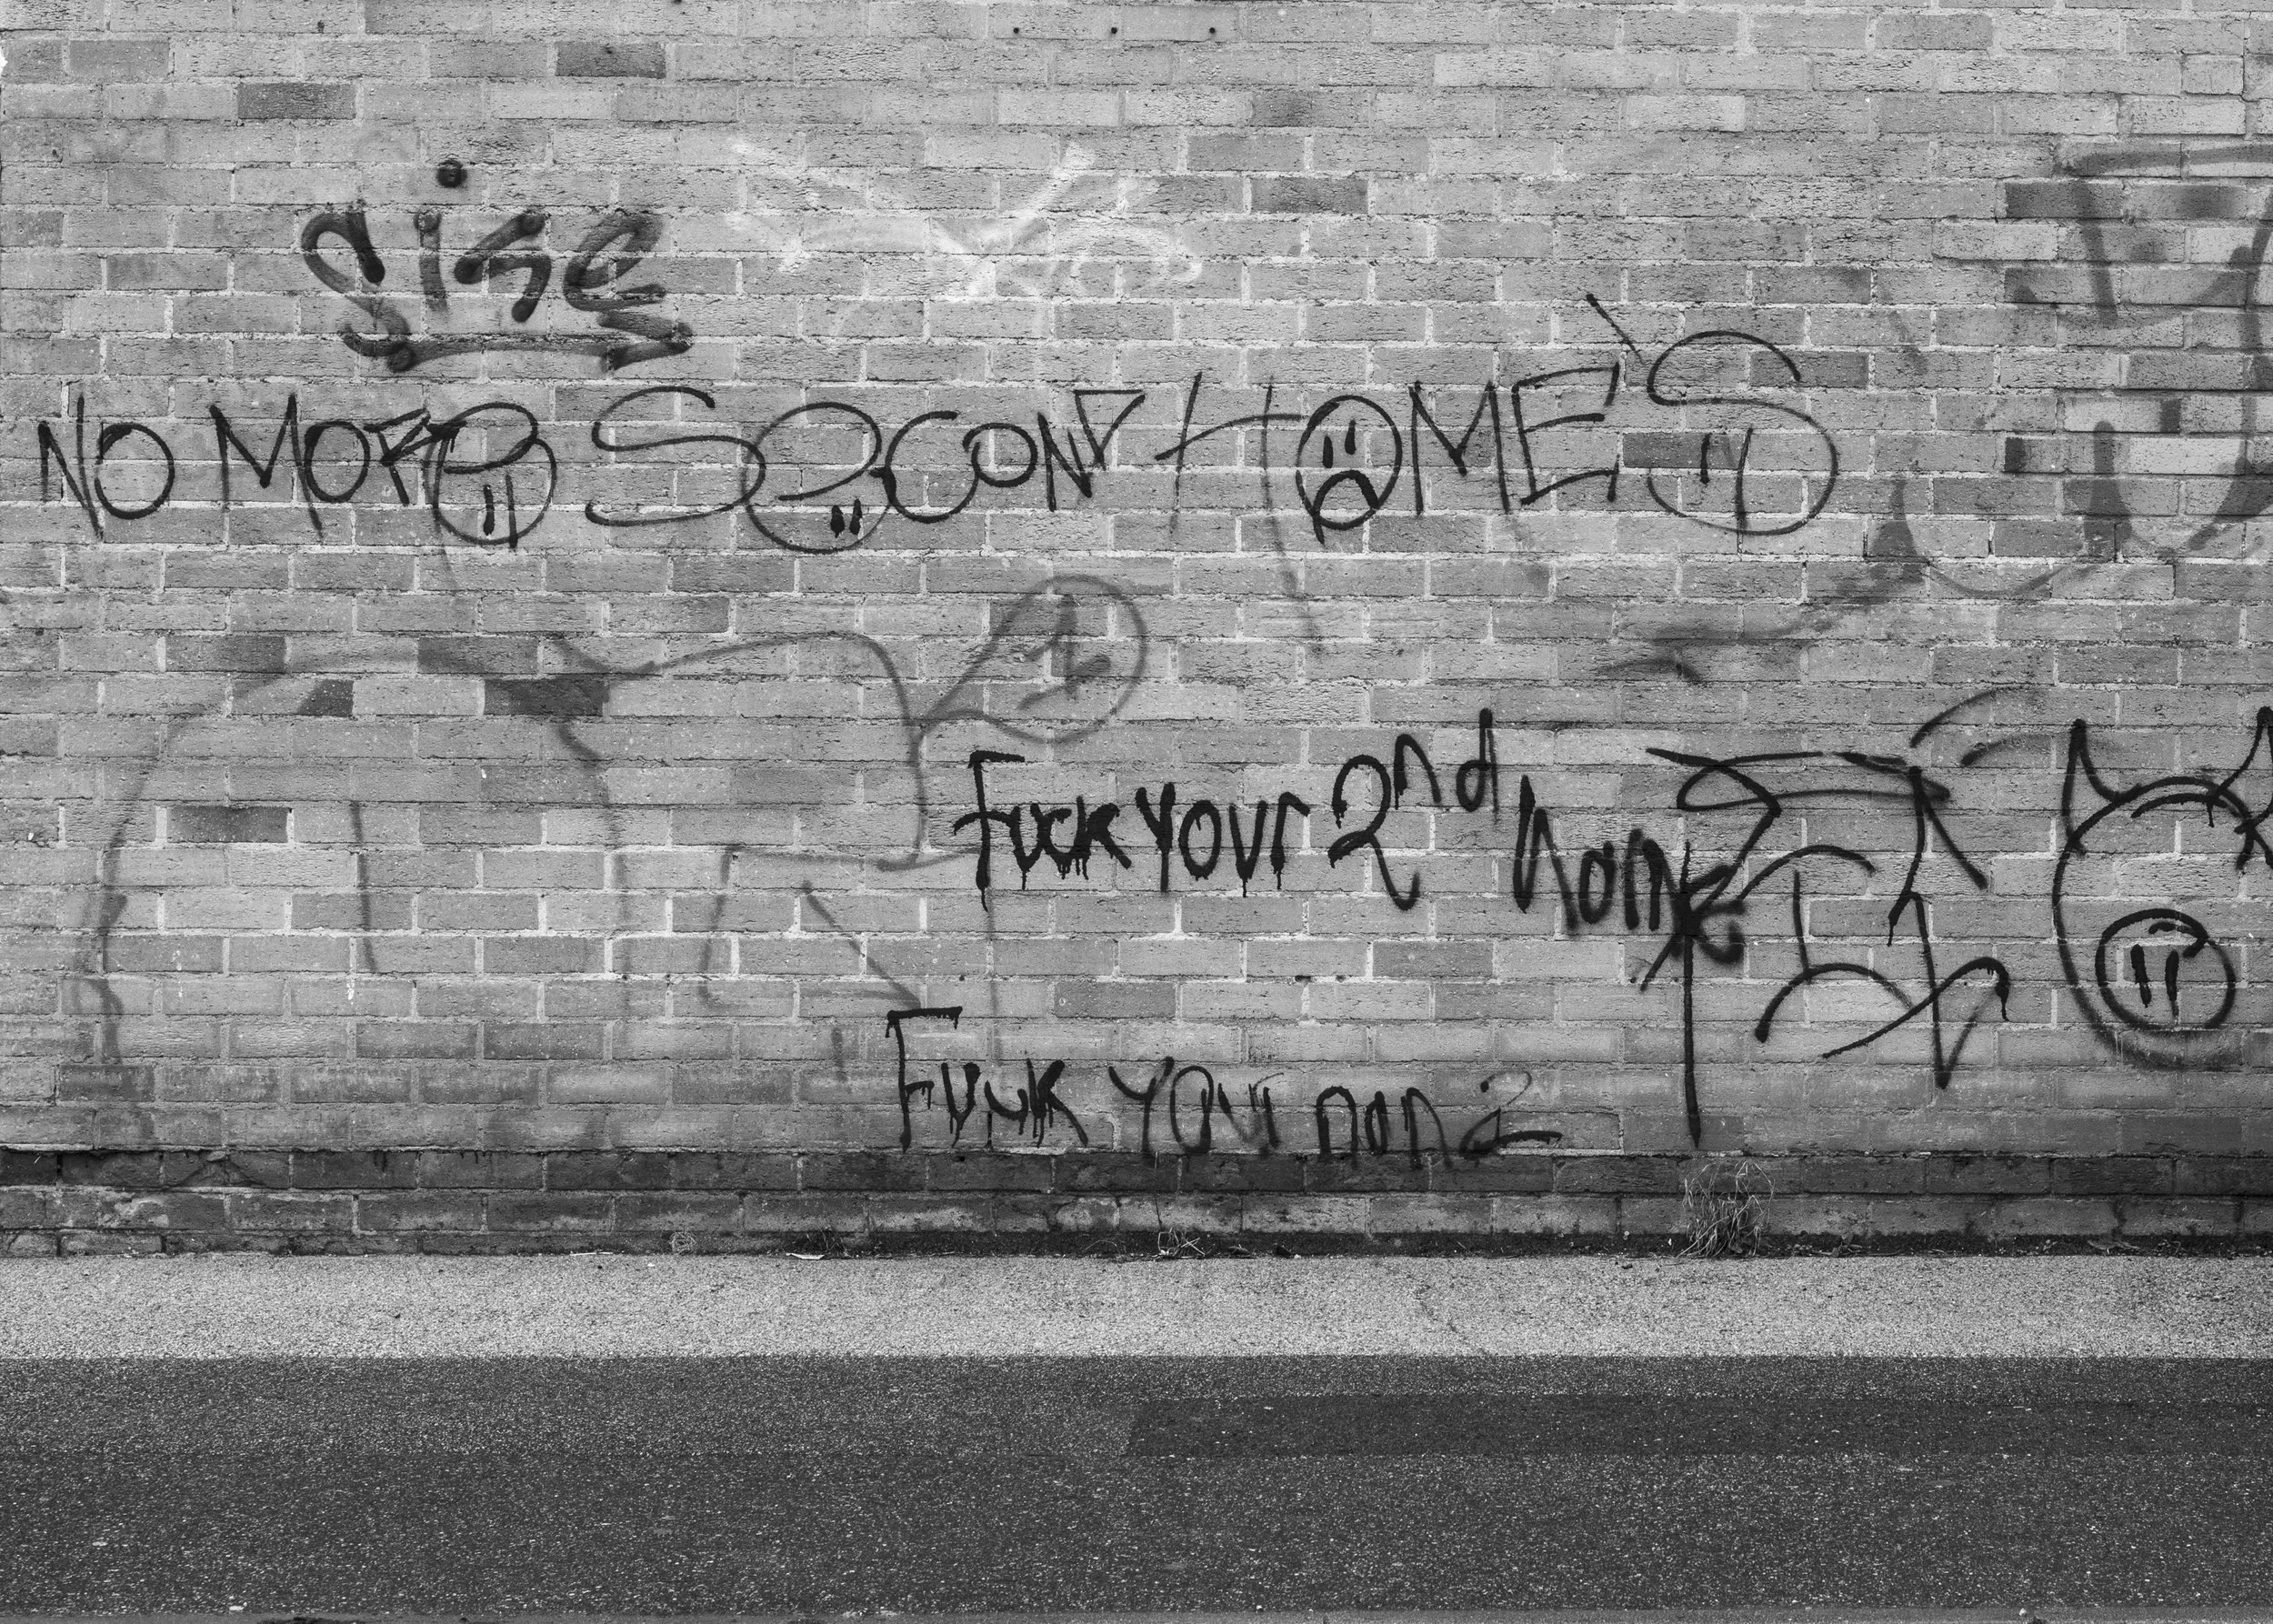 sise
NO MORE SECOND HOME'S
Fuck Your 2nd home
Fuck Your nan 2